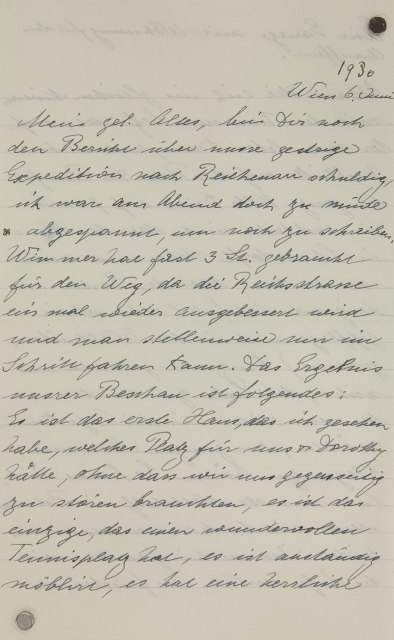 1930
Wien 6. Juni
Mein gel. Alles, bin Dir noch
den Bericht über unsre gestrige
Expedition nach Reichenau schuldig,
ich war am Abend doch zu müde
abgespannt, um noch zu schreiben.
Wimmer hat fast 3 St. gebraucht
für den Weg, da die Reichsstrasse
ein mal wieder ausgebessert wird
und man stellenweise nur im
Schritt fahren kann. Das Ergebnis
unsrer Beschau ist folgendes:
Es ist das erste Haus, das ich gesehen
habe, welches Platz für uns & Dorothy
hätte, ohne dass wir uns gegenseitig
zu stören brauchten, es ist das
einzige, das einen wundervollen
Tennisplatz hat, es ist anständig
möblirt, es hat eine herrliche